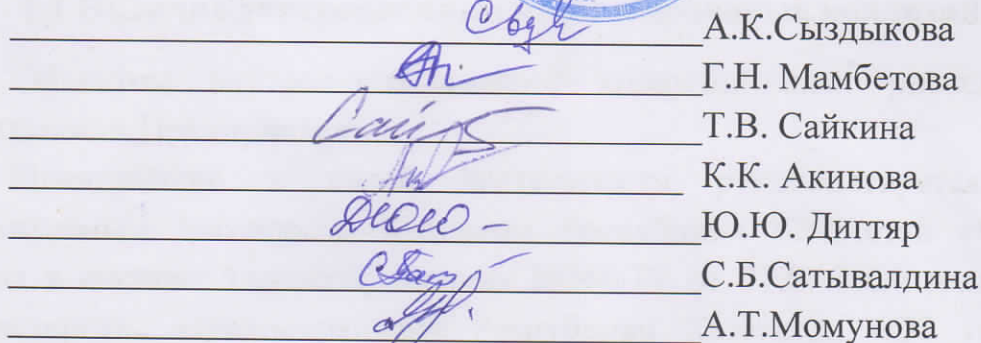 А.К.Сыздыкова
Г.Н. Мамбетова
Т.В. Сайкина
К.К. Акинова
Ю.Ю. Дигтяр
С.Б.Сатывалдина
А.Т.Момунова